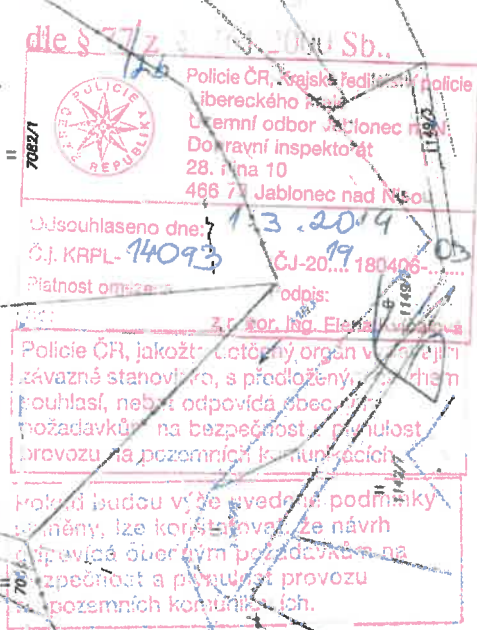 dle § 77 z Sb.,
12b
Policie ČR, Krajské ředitelství policie
Libereckého kraje
Územní odbor Jablonec n.N.
Dopravní inspektorát
28. října 10
466 Jablonec nad Nisou
POLICIE
REPUBLIKA
7082/1
1149/3
Odsouhlaseno dne: 1 3 . 2019
Č.j. KRPL- 14093 ČJ-20 19 180406- 03
Platnost omezena podpis:
por. Ing. Elena
1149/
Policie ČR, jakožto dotčený orgán
závazné stanovisko, s předloženým návrhem
souhlasí, neboť odpovídá
požadavkům na bezpečnost a plynulost
provozu na pozemních komunikacích.
1142/7
Pokud budou výše uvedené podmínky
splněny, lze konstatovat, že návrh
odpovídá obecným požadavkům na
bezpečnost a plynulost provozu
pozemních komunikacích.